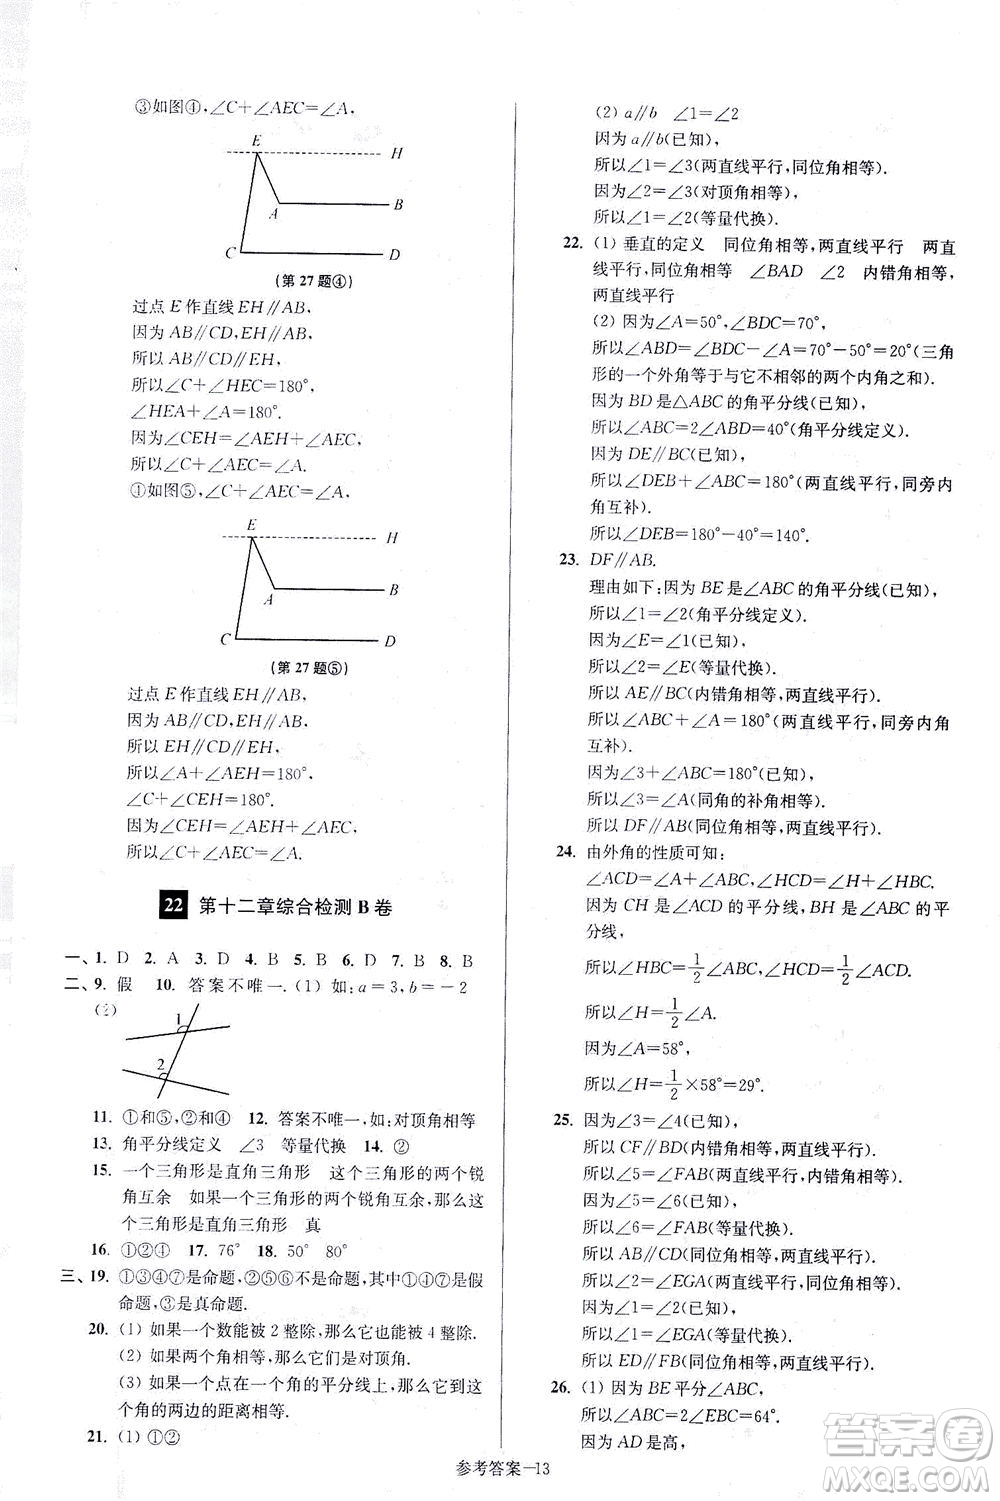 ③如图④,∠C+∠AEC=∠A,
E
H
A
B
C
D
(第 27 题④)
过点 E 作直线 EH∥AB,
因为 AB∥CD,EH∥AB,
所以 AB∥CD∥EH,
所以∠C+∠HEC=180°,
∠HEA+∠A=180°.
因为∠CEH=∠AEH+∠AEC,
所以∠C+∠AEC=∠A.
①如图⑤,∠C+∠AEC=∠A,
E
H
A
B
C
D
(第 27 题⑤)
过点 E 作直线 EH∥AB,
因为 AB∥CD,EH∥AB,
所以 EH∥CD∥EH,
所以∠A+∠AEH=180°,
∠C+∠CEH=180°.
因为∠CEH=∠AEH+∠AEC,
所以∠C+∠AEC=∠A.
22 第十二章综合检测 B 卷
一、1. D 2. A 3. D 4. B 5. D 6. D 7. B 8. B
二、9. 假 10. 答案不唯一.(1) 如:a=3,b=-2
(2)
1
2
11. ①和⑤,②和④ 12. 答案不唯一,如:对顶角相等
13. 角平分线定义 ∠3 等量代换 14. ②
15. 一个三角形是直角三角形 这个三角形的两个锐
角互余 如果一个三角形的两个锐角互余,那么这
个三角形是直角三角形 真
16. ①②④ 17. 76° 18. 50° 80°
三、19. ①③④⑦是命题,②⑤⑥不是命题,其中①④⑦是假
命题,③是真命题.
20. (1) 如果一个数能被 2 整除,那么它也能被 4 整除.
(2) 如果两个角相等,那么它们是对顶角.
(3) 如果一个点在一个角的平分线上,那么它到这
个角的两边的距离相等.
21. (1) ①②
(2) a∥b ∠1=∠2
因为 a∥b(已知),
所以∠1=∠3(两直线平行,同位角相等),
因为∠2=∠3(对顶角相等),
所以∠1=∠2(等量代换).
22. (1) 垂直的定义 同位角相等,两直线平行 两直
线平行,同位角相等 ∠BAD ∠2 内错角相等,
两直线平行
(2) 因为∠A=50°,∠BDC=70°,
所以∠ABD=∠BDC-∠A=70°-50°=20°(三角
形的一个外角等于与它不相邻的两个内角之和).
因为 BD 是△ABC 的角平分线(已知),
所以∠ABC=2∠ABD=40°(角平分线定义).
因为 DE∥BC(已知),
所以∠DEB+∠ABC=180°(两直线平行,同旁内
角互补).
所以∠DEB=180°-40°=140°.
23. DF∥AB.
理由如下:因为 BE 是∠ABC 的角平分线(已知),
所以∠1=∠2(角平分线定义).
因为∠E=∠1(已知),
所以∠2=∠E(等量代换).
所以 AE∥BC(内错角相等,两直线平行).
所以∠ABC+∠A=180°(两直线平行,同旁内角
互补).
因为∠3+∠ABC=180°(已知),
所以∠3=∠A(同角的补角相等).
所以 DF∥AB(同位角相等,两直线平行).
24. 由外角的性质可知:
∠ACD=∠A+∠ABC,∠HCD=∠H+∠HBC.
因为 CH 是∠ACD 的平分线,BH 是∠ABC 的平
分线,
所以∠HBC=1/2∠ABC,∠HCD=1/2∠ACD.
所以∠H=1/2∠A.
因为∠A=58°,
所以∠H=1/2×58°=29°.
25. 因为∠3=∠4(已知),
所以 CF∥BD(内错角相等,两直线平行),
所以∠5=∠FAB(两直线平行,内错角相等).
因为∠5=∠6(已知),
所以∠6=∠FAB(等量代换).
所以 AB∥CD(同位角相等,两直线平行),
所以∠2=∠EGA(两直线平行,同位角相等).
因为∠1=∠2(已知),
所以∠1=∠EGA(等量代换).
所以 ED∥FB(同位角相等,两直线平行).
26. (1) 因为 BE 平分∠ABC,
所以∠ABC=2∠EBC=64°.
因为 AD 是高,
参考答案—13
答案圈
MXQE.COM